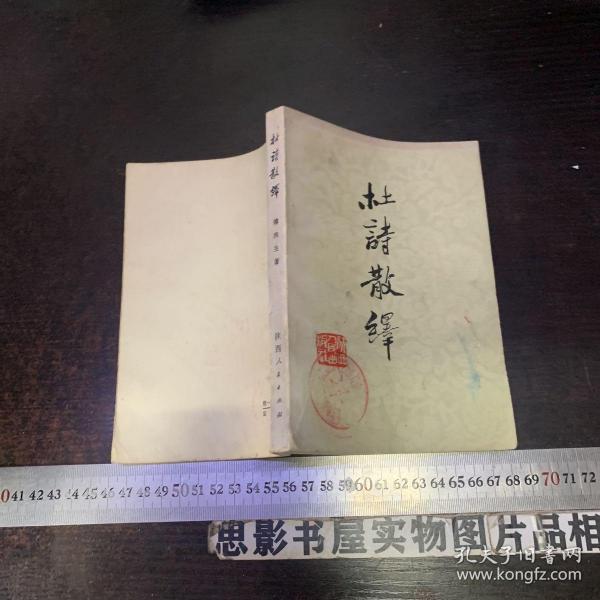 杜詩散繹
傅庚生著
陕西人民出版社
杜詩散繹
陕西
人民出
版社
041 42 43 44 45 46 47 48 49 50 51 52 53 54 55 56 57 58 59 60 61 62 63 64 65 66 67 68 69 70 71 72
思影书屋实物图片品相
孔夫子旧书网
www.kongfz.com